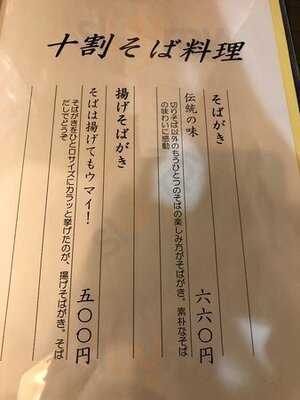 十割そば料理
そばがき
伝統の味
六六〇円
切りそば以外のもうひとつのそばの楽しみ方がそばがき。素朴なそば
の味わいに感動
揚げそばがき
そばは揚げてもウマイ！
五〇〇円
そばがきをひと口サイズにカラッと挙げたのが、揚げそばがき。そば
だしでどうぞ